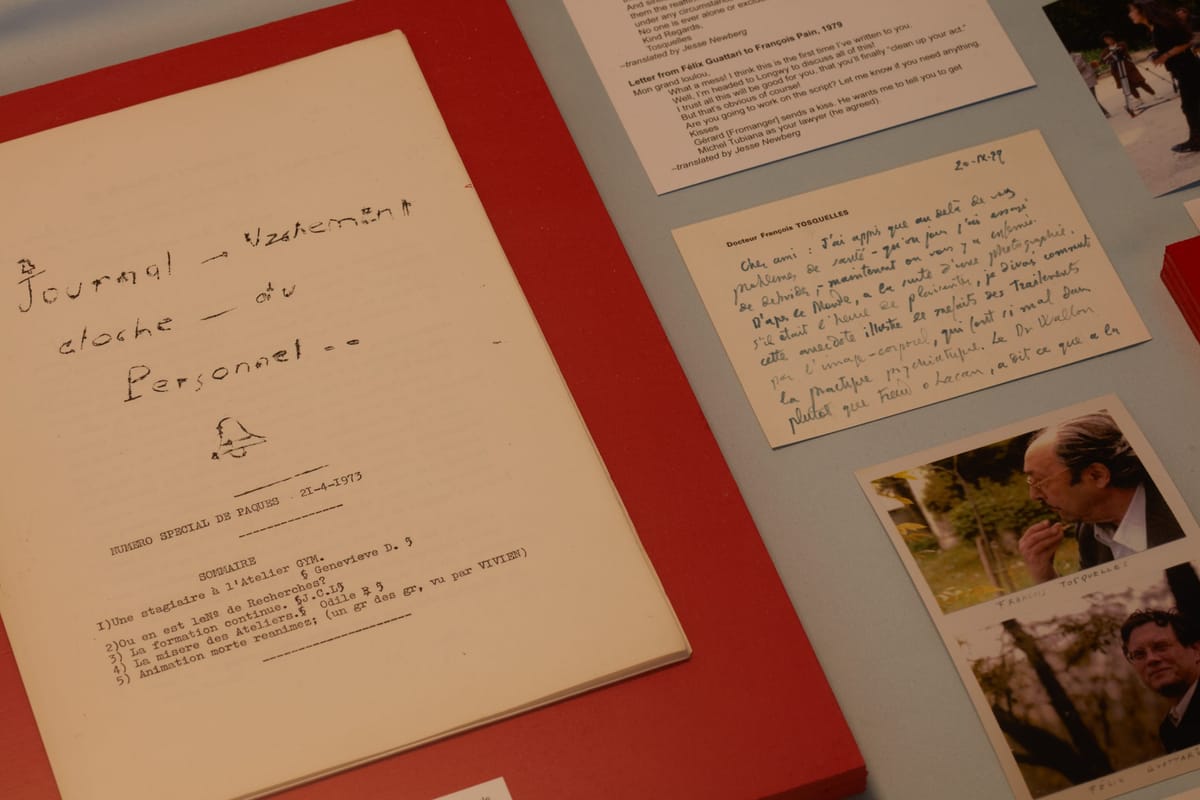 Journal → Vachement
cloche — du
Personnel --
NUMERO SPECIAL DE PAQUES 21-4-1973
SOMMAIRE
1)Une stagiaire à l'Atelier GYM.
§ Genevieve D. §
2)Ou en est leNº de Recherches?
3) La formation continue. §J.C.L§
4) La misere des Ateliers.§ Odile B §
5) Animation morte reanimez; (un gr des gr, vu par VIVIEN)
And
them the reaffirm
under any circumstanc
No one is ever alone or exclu
Kind Regards,
Tosquelles
–translated by Jesse Newberg
Letter from Félix Guattari to François Pain, 1979
Mon grand loulou,
What a mess! I think this is the first time I've written to you.
Well, I'm headed to Longwy to discuss all of this!
I trust all this will be good for you, that you'll finally "clean up your act."
But that's obvious of course!
Are you going to work on the script? Let me know if you need anything.
Kisses
Gérard [Fromanger] sends a kiss. He wants me to tell you to get
Michel Tubiana as your lawyer (he agreed).
–translated by Jesse Newberg
Docteur François TOSQUELLES
20-IX-79
Cher ami : J'ai appris que au delà de vos
problèmes de santé - qu'on jour j'ai essayé
de - maintenant on vous y a enfermé.
D'après le Monde, a la suite d'une photographie.
s'il était l'heure de plaisanter, je dirais comment
cette anecdote illustre les mefaits des Traitements
par l'image-corporel, qui font si mal dans
la practique psychiatrique. Le Dr Wallon
plutot que Freud o Lacan, a dit ce que a la
FRANCIS TOSQUELLES
FELIX GUATTARI